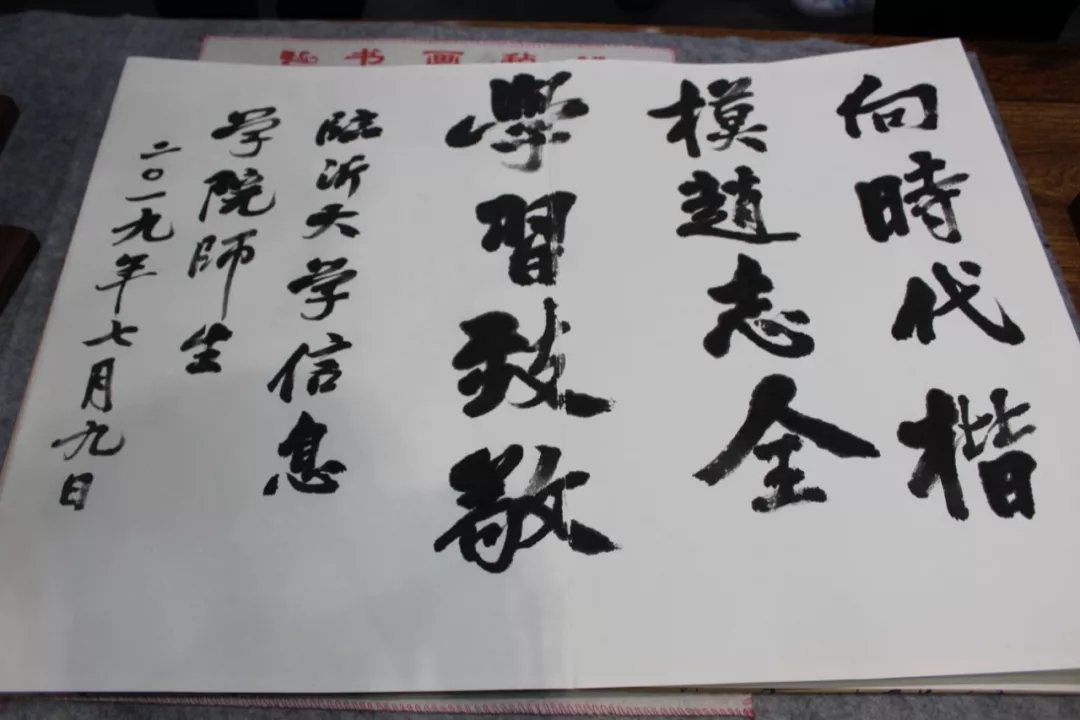 向時代楷
模趙志全
學習致敬
临沂大学信息
学院師生
二〇一九年七月九日
书画